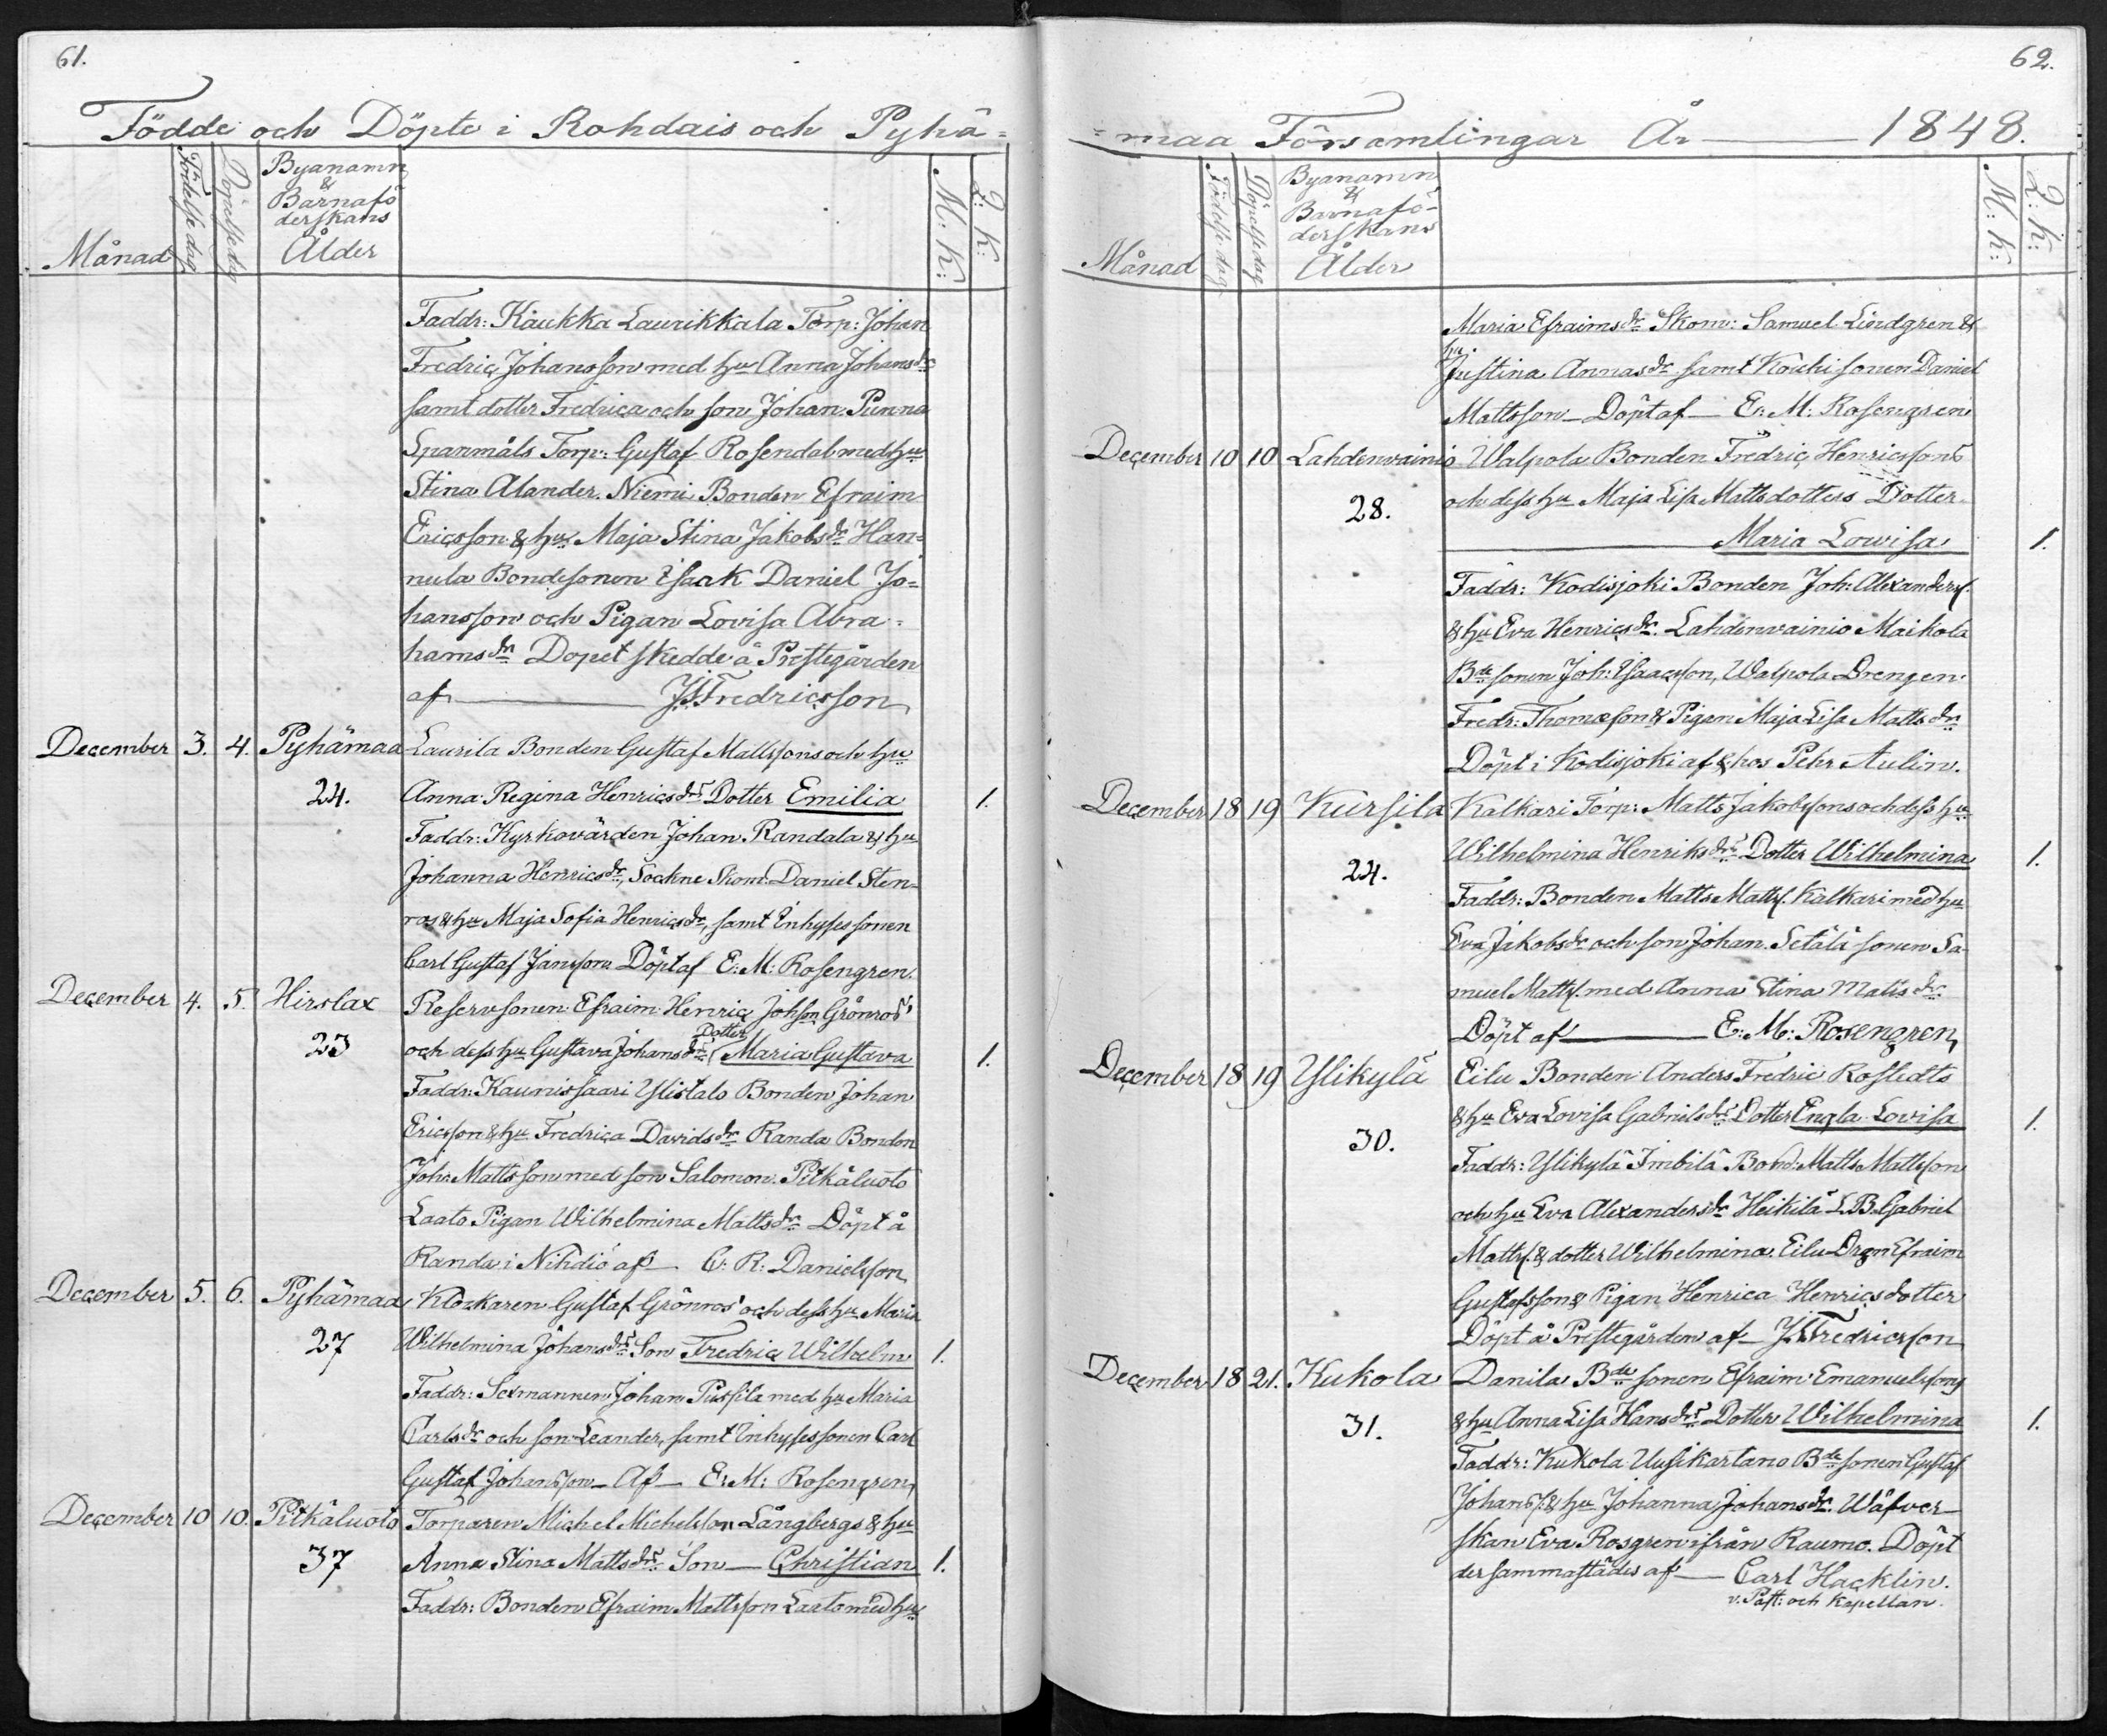 61.
Födde och Döpte i Rohdais och Pyhä=
Månad
Födelse dag
Döpelse dag
Byanamn
&
Barnafö
derskans
Ålder
M: K:
Q: K:
Faddr: Kaukka Laurikkala Torp: Johan
Fredric Johansson med hu Anna Johansdr
samt dotter Fredrica och son Johan. Punna
Spanmåls Torp: Gustaf Rosendal med hu
Stina Alander. Niemi Bonden Efraim
Ericsson & hu Maja Stina Jakobsdr Han=
nula Bondesonen Isaak Daniel Jo=
hansson och Pigan Lovisa Abra=
hamsdr Dopet skedde å Prestegården
af J. Fredricsson
December 3. 4. Pyhämaa Laurila Bonden Gustaf Mattssons och hu
24. Anna Regina Henricsdrs Dotter Emilia 1.
Faddr: Kyrkovärden Johan Randala & hu
Johanna Henricsdr, Sockne Skom. Daniel Sten-
ros & hu Maja Sofia Henricsdr, samt Inhyses sonen
Carl Gustaf Jansson Döpt af E: M: Rosengren.
December 4. 5. Hirslax Reservsonen Efraim Henric Johsson Grönros'
23 och dess hu Gustava Johansdrs Dotter Maria Gustava 1.
Faddr: Kaunissaari Ylistalo Bonden Johan
Ericsson & hu Fredrica Davidsdr Randa Bonden
Joh: Mattsson med son Salomon. Pitkäluoto
Laato Pigan Wilhelmina Mattsdr Döpt å
Randa i Nihdiö af C: R: Danielsson
December 5. 6. Pyhämaa Klockaren Gustaf Grönros' och dess hu Maria
27 Wilhelmina Johansdrs Son Fredric Wilhelm 1.
Faddr: Sexmannen Johan Pussila med hu Maria
Carlsdr och son Leander, samt Inhyses sonen Carl
Gustaf Johansson – Af – E: M: Rosengren
December 10 10. Pitkäluoto Torparen Michel Michelsson Långbergs & hu
37 Anna Stina Mattsdrs Son – Christian 1.
Faddr: Bonden Efraim Mattsson Laato med hu
62.
=maa Församlingar År 1848.
Månad
Födelse dag
Döpelse dag
Byanamn
&
Barnafö-
derskans
Ålder
M: k:
Q: k:
Maria Efraimsdr Skom: Samuel Lindgren &
hu Justina Annasdr samt Kouhi sonen Daniel
Mattsson – Döpt af – E: M: Rosengren
December 10 10 Lahdenvainio Walpola Bonden Fredric Henricssons
28. och dess hu Maja Lisa Mattsdotters Dotter
Maria Lowisa 1.
Faddr: Kodisjoki Bonden Joh: Alexanders.
& hu Eva Henricsdr. Lahdenvainio Maikola
Bde sonen Joh: Isaacsson, Walpola Drengen
Fredr: Thomasson & Pigan Maja Lisa Mattsdr
Döpt i Kodisjoki af & hos Pehr Aulin.
December 18 19 Kursila Kalkari Torp: Matts Jakobssons och dess hu
24. Wilhelmina Henriksdrs Dotter Wilhelmina 1.
Faddr: Bonden Matts Matts. Kalkari med hu
Eva Jakobsdr och son Johan. Setälä sonen Sa-
muel Matts. med Anna Stina Matsdr
Döpt af E: M: Rosengren
December 18 19 Ylikylä Eilu Bonden Anders Fredric Rostedts
30. & hu Eva Lovisa Gabrielsdrs Dotter Engla Lovisa 1.
Faddr: Ylikylä Imbilä Bond. Matts Mattsson
och hu Eva Alexandersdr Heikilä L. B. Gabriel
Matts. & dotter Wilhelmina. Eilu Drgn Efraim
Gustafsson & Pigan Henrica Henricsdotter
Döpt å Prestegården af J. Fredricsson
December 18 21. Kukola Danila Bde sonen Efraim Emanuelssons
31. & hu Anna Lisa Hansdrs Dotter Wilhelmina 1.
Faddr: Kukola Uusikartano Bde sonen Gustaf
Johans. & hu Johanna Johansdr. Wäfver-
skan Eva Rosgren ifrån Raumo. Döpt
dersammastädes af Carl Hacklin.
v. Past: och Kapellan.